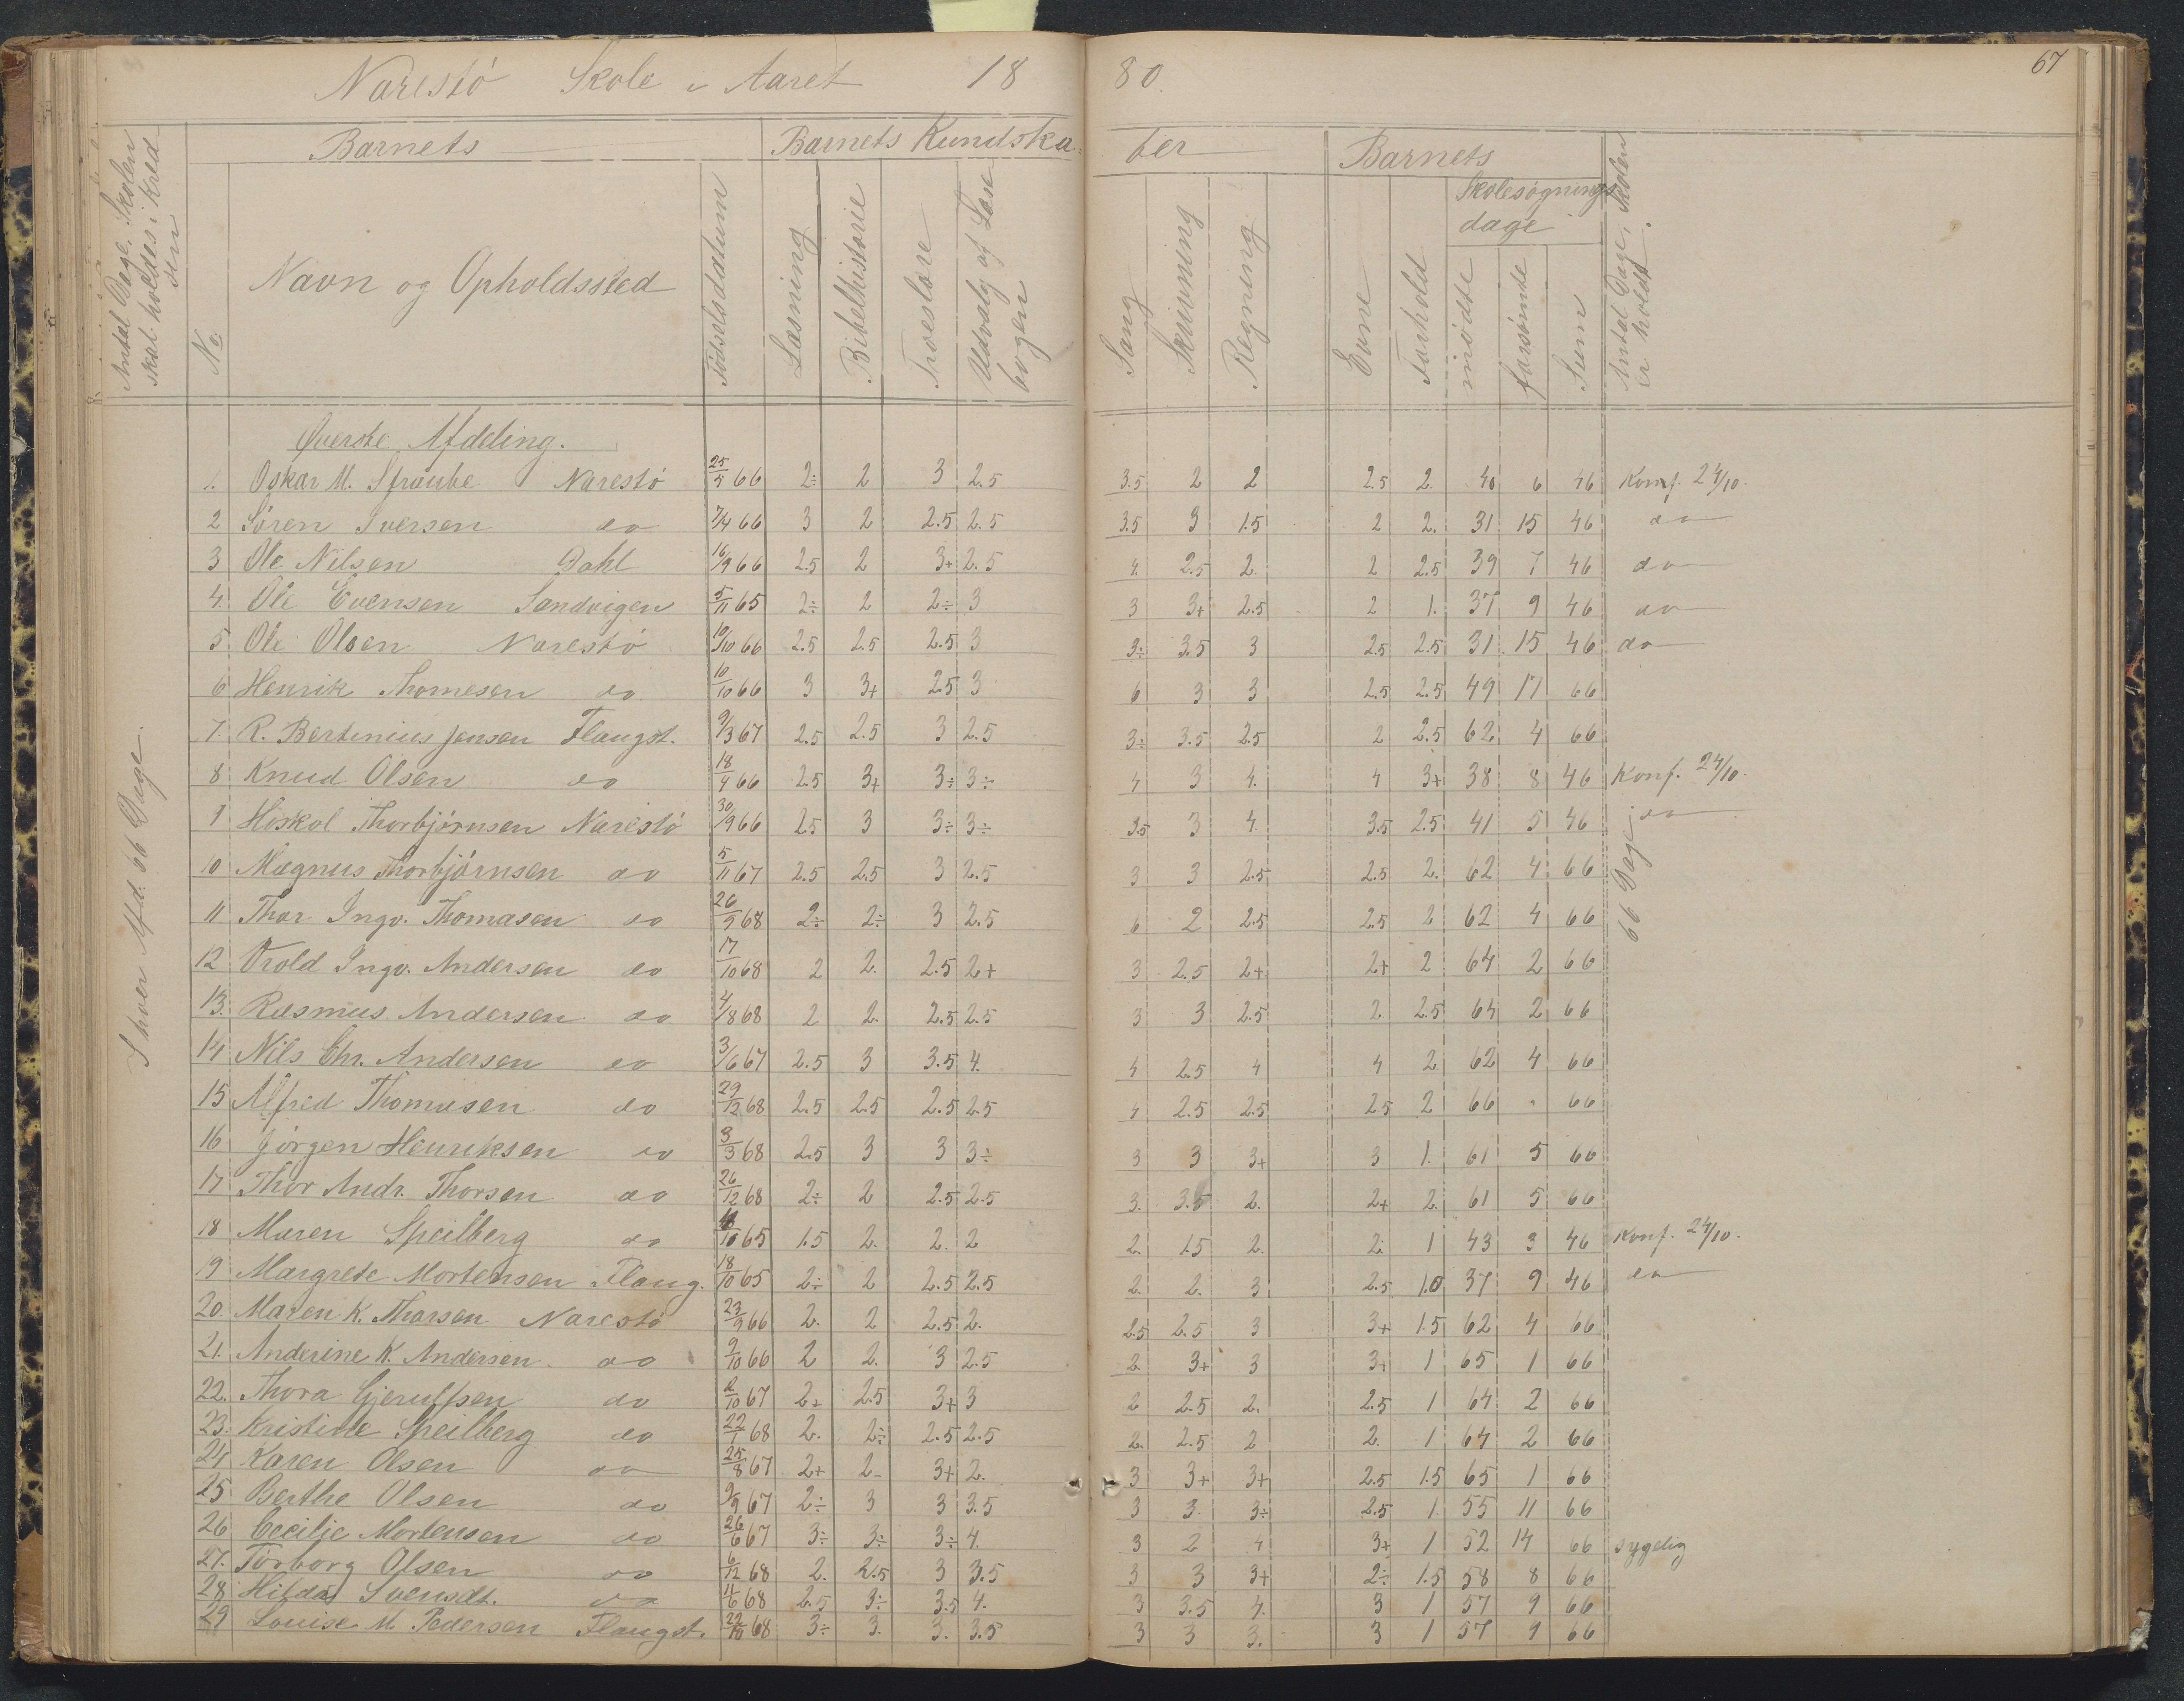 Narestö Skole i Aaret 1880.
67
Antal Dage, Skolen skal holdes i Kredsen
Barnets
Barnets Kundskaber
Barnets
No.
Navn og Opholdssted
Födselsdatum
Læsning
Bibelhistorie
Troeslære
Udvalg af Læsebogen
Sang
Skrivning
Regning
Evne
Forhold
Skolesögningsdage
mödte
forsömte
Sum
Antal Dage, Skolen er holdt.
Överste Afdeling.
1. Oskar M. Straube Narestö 25/5 66 2÷ 2 3 2.5 3.5 2 2 2.5 2. 40 6 46 Konf. 24/10.
2 Sören Iversen do 7/4 66 3 2 2.5 2.5 3.5 3 1.5 2 2. 31 15 46 do
3 Ole Nilsen Dahl 16/9 66 2.5 2 3+ 2.5 4. 2.5 2. 2 2.5 39 7 46 do
4. Ole Evensen Sandvigen 5/11 65 2÷ 2 2÷ 3 3 3+ 2.5 2 1. 37 9 46 do
5 Ole Olsen Narestö 19/10 66 2.5 2.5 2.5 3 3÷ 3.5 3 2.5 2.5 31 15 46 do
6 Henrik Thomesen do 10/10 66 3 3+ 2.5 3 6 3 3 2.5 2.5 49 17 66
7. R. Bertinius Jensen Flangst. 9/3 67 2.5 2.5 3 2.5 3÷ 3.5 2.5 2 2.5 62 4 66
8 Knud Olsen do 18/4 66 2.5 3+ 3÷ 3÷ 4 3 4. 4 3+ 38 8 46 Konf. 24/10.
9 Höskol Thorbjörnsen Narestö 30/9 66 2.5 3 3÷ 3÷ 3.5 3 4 3.5 2.5 41 5 46 do
10 Magnus Thorbjörnsen do 5/11 67 2.5 2.5 3 2.5 3 3 2.5 2.5 2. 62 4 66
11 Thor Ingv. Thomasen do 26/9 68 2÷ 2÷ 3 2.5 6 2 2.5 2.5 2 62 4 66
12 Trold Ingv. Andersen do 17/10 68 2 2. 2.5 2+ 3 2.5 2+ 2+ 2 64 2 66
13. Rasmus Andersen do 4/8 68 2 2. 2.5 2.5 3 3 2.5 2. 2.5 64 2 66
14 Nils Chr. Andersen do 3/6 67 2.5 3 3.5 4. 4 2.5 4 4 2 62 4 66
15 Alfred Thomasen do 29/12 68 2.5 2.5 2.5 2.5 4 2.5 2.5 2.5 2 66 . 66
16 Jörgen Henriksen do 3/3 68 2.5 3 3 3÷ 3 3 3+ 3 1. 61 5 66
17 Thor Andr. Thorsen do 26/12 68 2÷ 2 2.5 2.5 3. 3.5 2. 2+ 2. 61 5 66
18 Maren Speilberg do /10 65 1.5 2. 2. 2 2. 1.5 2. 2. 1 43 3 46 Konf. 24/10.
19 Margrete Mortensen Flang. 18/10 65 2÷ 2 2.5 2.5 2. 2. 3 2.5 1.0 37 9 46 do
20. Maren K. Thorsen Narestö 23/9 66 2. 2 2.5 2. 2.5 2.5 3 3+ 1.5 62 4 66
21. Anderine K. Andersen do 9/10 66 2 2. 3 2.5 2. 3+ 3 3+ 1 65 1 66
22. Thora Gjerulfsen do 2/10 67 2+ 2.5 3+ 3 2 2.5 2. 2.5 1 64 2 66
23. Kristine Speilberg do 22/1 68 2. 2÷ 2.5 2.5 2. 2.5 2 2. 1 64 2 66
24 Karen Olsen do 25/8 67 2+ 2- 3+ 2. 3 3+ 3+ 2.5 1.5 65 1 66
25 Berthe Olsen do 9/9 67 2÷ 3 3 3.5 3 3. 3÷ 2.5 1. 55 11 66
26 Cecilie Mortensen do 26/6 67 3÷ 3÷ 3÷ 4. 3 2 4 3+ 1 52 14 66 sygelig
27. Torborg Olsen do 6/12 68 2. 2.5 3 3.5 3 3 3+ 2÷ 1.5 58 8 66
28 Hilda Svensdt. do 11/6 68 2.5 3÷ 3.5 4. 3 3.5 4. 3 1 57 9 66
29 Louise M. Pedersen Flangst. 22/10 68 3÷ 3. 3. 3.5 3 3 3. 3 1 57 9 66
I hver Afd. 66 Dage.
66 Dage